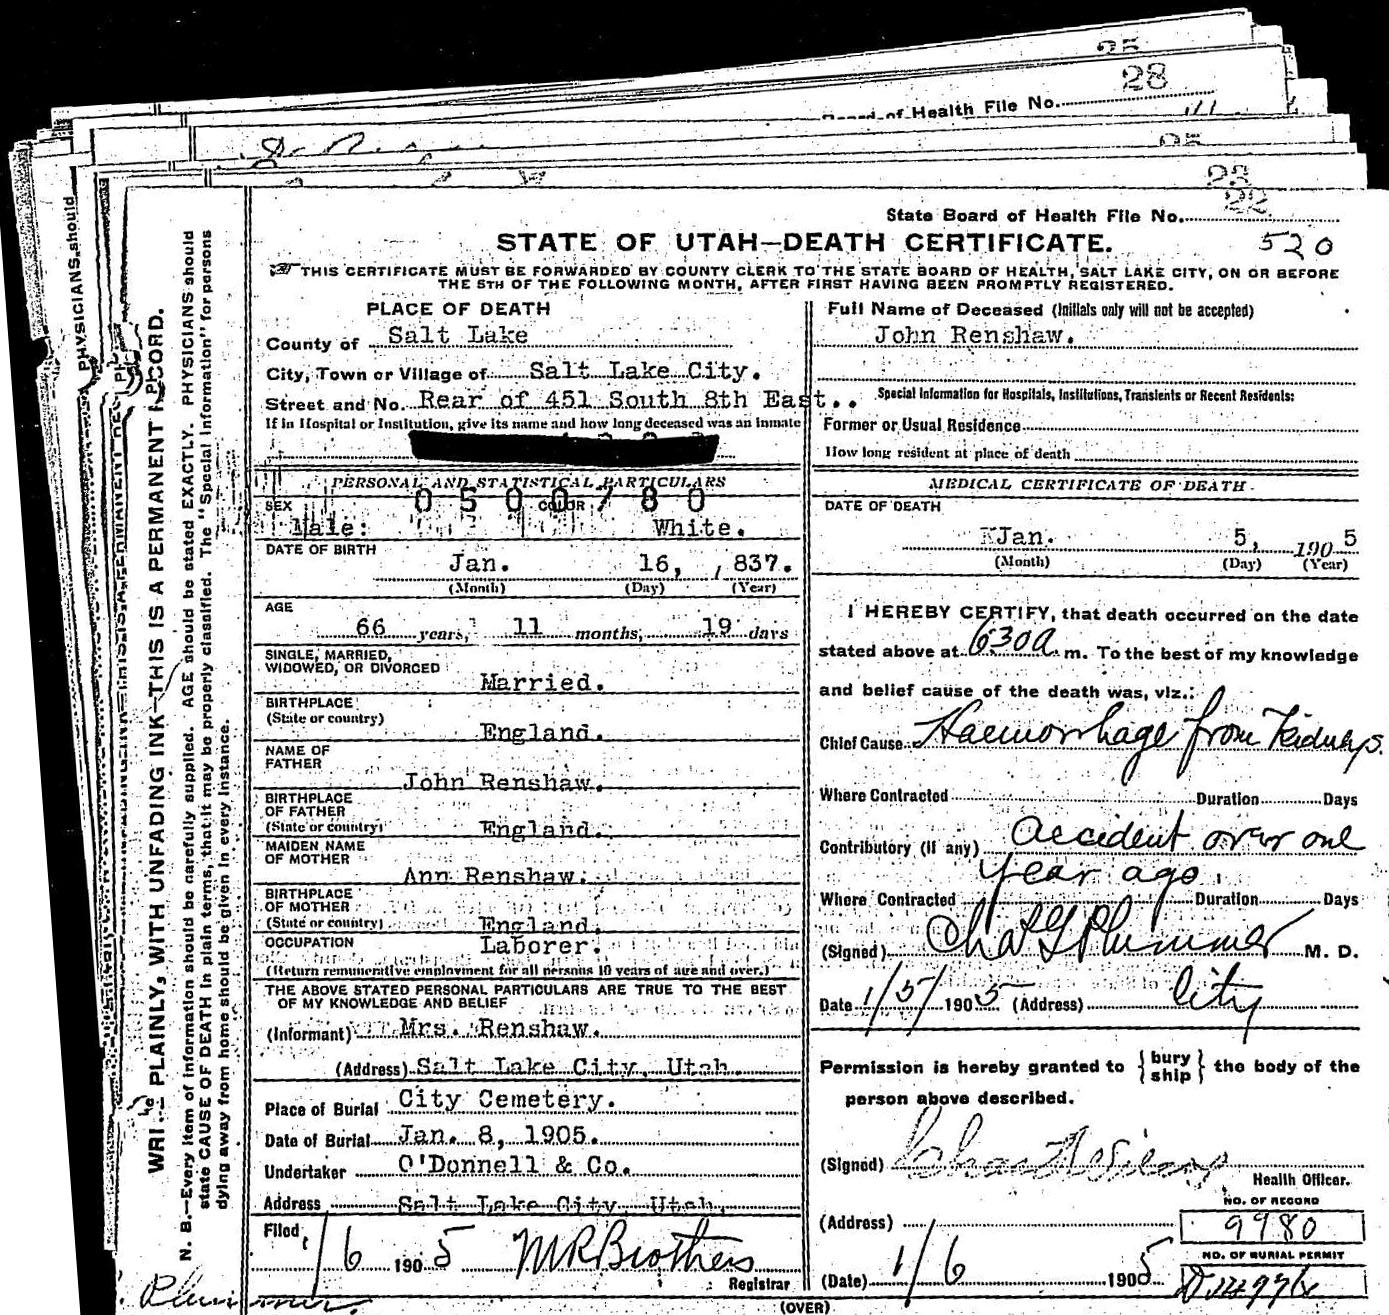 25
28
Board of Health File No.
25
23
22
State Board of Health File No.
STATE OF UTAH—DEATH CERTIFICATE.
520
THIS CERTIFICATE MUST BE FORWARDED BY COUNTY CLERK TO THE STATE BOARD OF HEALTH, SALT LAKE CITY, ON OR BEFORE
THE 5TH OF THE FOLLOWING MONTH, AFTER FIRST HAVING BEEN PROMPTLY REGISTERED.
PHYSICIANS should
WRITE PLAINLY, WITH UNFADING INK—THIS IS A PERMANENT RECORD.
N. B.—Every item of information should be carefully supplied. AGE should be stated EXACTLY. PHYSICIANS should
state CAUSE OF DEATH in plain terms, that it may be properly classified. The "Special Information" for persons
dying away from home should be given in every instance.
PLACE OF DEATH
County of Salt Lake
City, Town or Village of Salt Lake City.
Street and No. Rear of 451 South 8th East..
If in Hospital or Institution, give its name and how long deceased was an inmate
PERSONAL AND STATISTICAL PARTICULARS
0500780
SEX COLOR
Male: White.
DATE OF BIRTH
Jan. 16, , 837.
(Month) (Day) (Year)
AGE
66 years, 11 months, 19 days
SINGLE, MARRIED,
WIDOWED, OR DIVORCED
Married.
BIRTHPLACE
(State or country)
England.
NAME OF
FATHER
John Renshaw.
BIRTHPLACE
OF FATHER
(State or country)
England.
MAIDEN NAME
OF MOTHER
Ann Renshaw.
BIRTHPLACE
OF MOTHER
(State or country)
England.
OCCUPATION
Laborer.
(Return remunerative employment for all persons 10 years of age and over.)
THE ABOVE STATED PERSONAL PARTICULARS ARE TRUE TO THE BEST
OF MY KNOWLEDGE AND BELIEF
(Informant) Mrs. Renshaw.
(Address) Salt Lake City, Utah.
Place of Burial City Cemetery.
Date of Burial Jan. 8, 1905.
Undertaker O'Donnell & Co.
Address Salt Lake City, Utah.
Filed, 1/6 1905 M R Brothers
Registrar
Full Name of Deceased (Initials only will not be accepted)
John Renshaw.
Special Information for Hospitals, Institutions, Transients or Recent Residents:
Former or Usual Residence
How long resident at place of death
MEDICAL CERTIFICATE OF DEATH
DATE OF DEATH
Jan. 5, 1905
(Month) (Day) (Year)
I HEREBY CERTIFY, that death occurred on the date
stated above at 630a. m. To the best of my knowledge
and belief cause of the death was, viz.:
Chief Cause Haemorrhage from Kidneys.
Where Contracted Duration Days
Contributory (if any) accident over one
year ago.
Where Contracted Duration Days
(Signed) Chas G Plummer M. D.
Date 1/5/ 1905 (Address) City
Permission is hereby granted to {bury
ship} the body of the
person above described.
(Signed)
Health Officer.
NO. OF RECORD
(Address) 9980
NO. OF BURIAL PERMIT
(Date) 1/6 1905
Plummer.
(OVER)